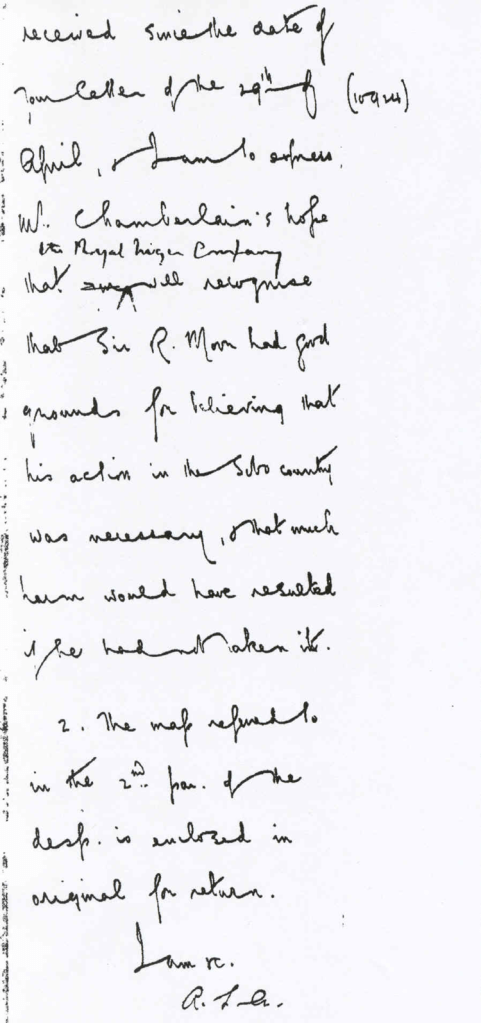 received since the date of
your letter of the 29th of (10924)
April, & I am to express
Mr. Chamberlain's hope
the Royal Niger Company
that will recognise
that Sir R. Moor had good
grounds for believing that
his action in the Sobo country
was necessary, & that much
harm would have resulted
if he had not taken it.
2. The map referred to
in the 2nd par. of the
desp. is enclosed in
original for return.
I am &c.